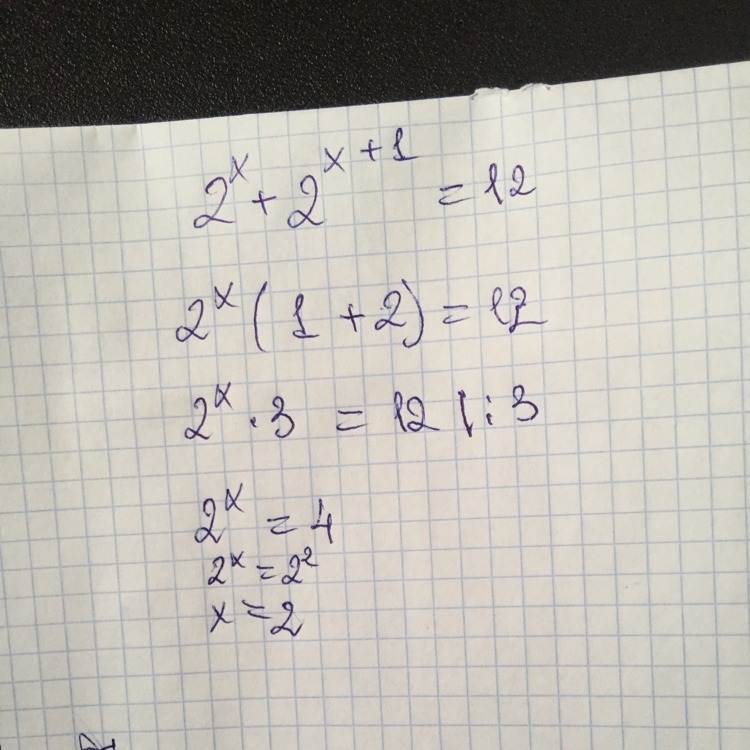 2ˣ + 2ˣ⁺¹ = 12
2ˣ (1 + 2) = 12
2ˣ · 3 = 12 | : 3
2ˣ = 4
2ˣ = 2²
x = 2